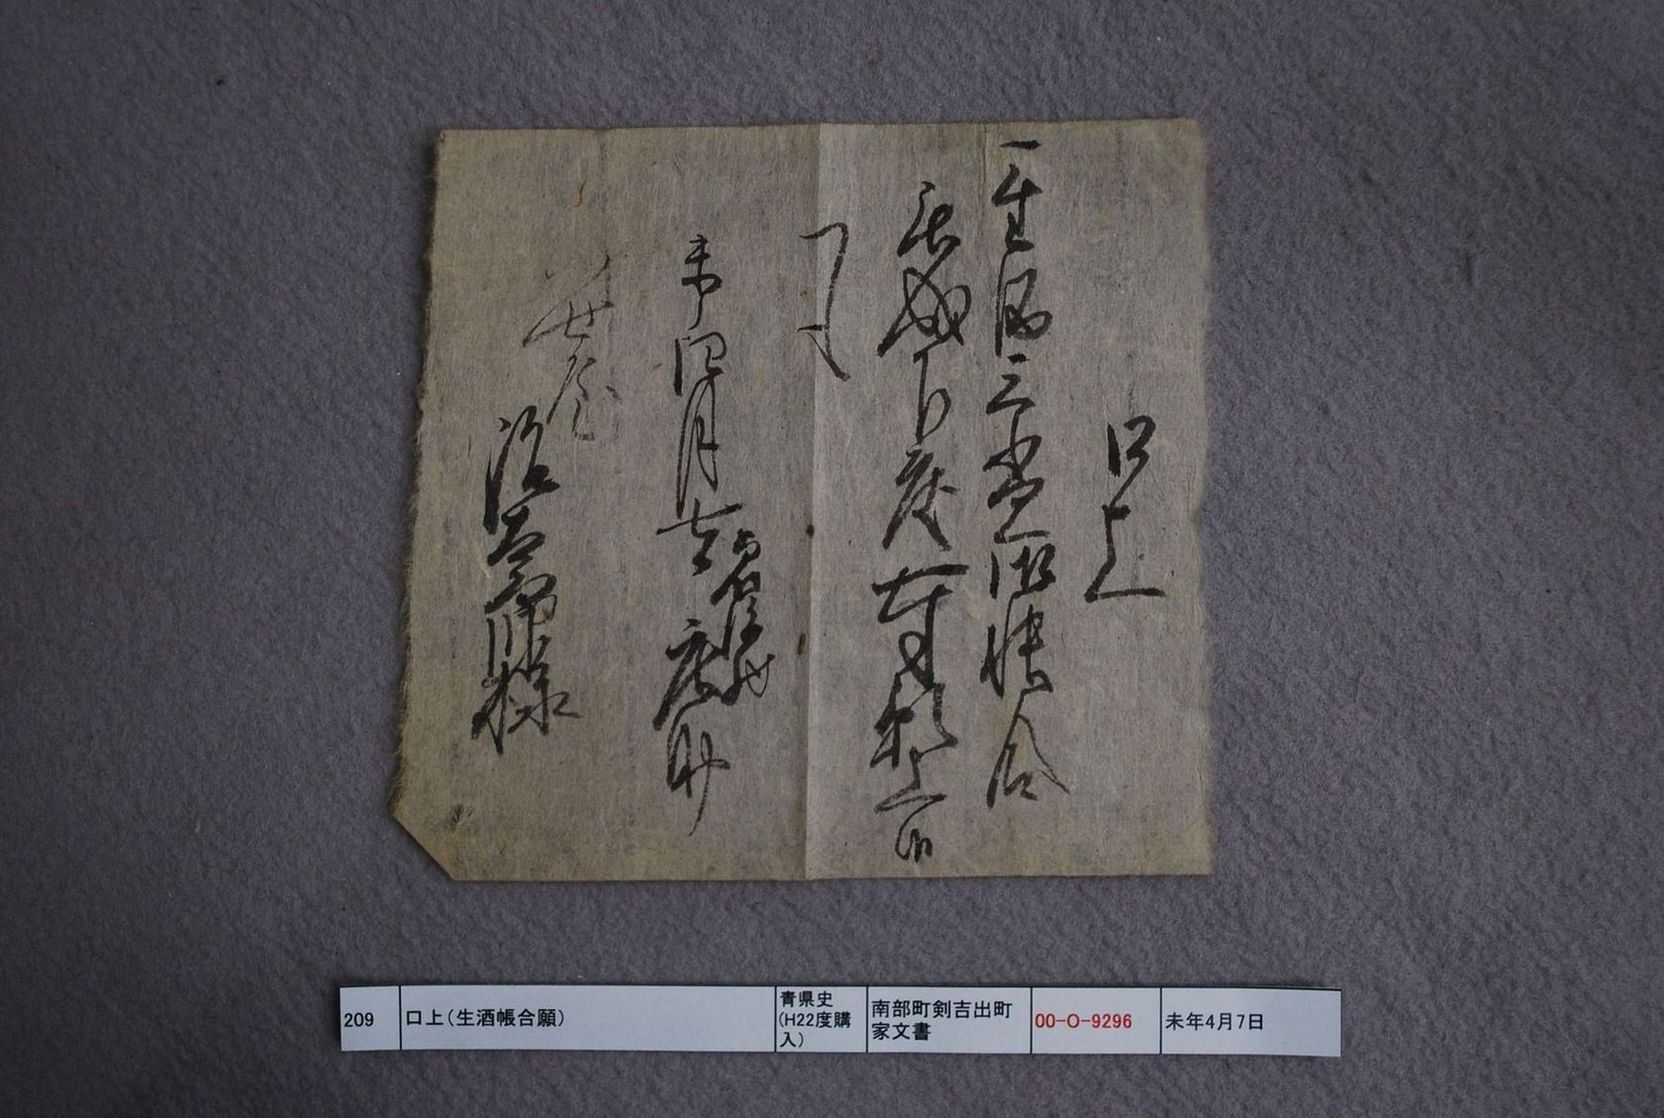 口上
一生酒三盃御帳合
被成下度奉頼上候
以上
未四月七日
庄助
世屋
治五郎様
209
口上（生酒帳合願）
青県史
(H22度購
入）
南部町剣吉出町
家文書
00-O-9296
未年4月7日